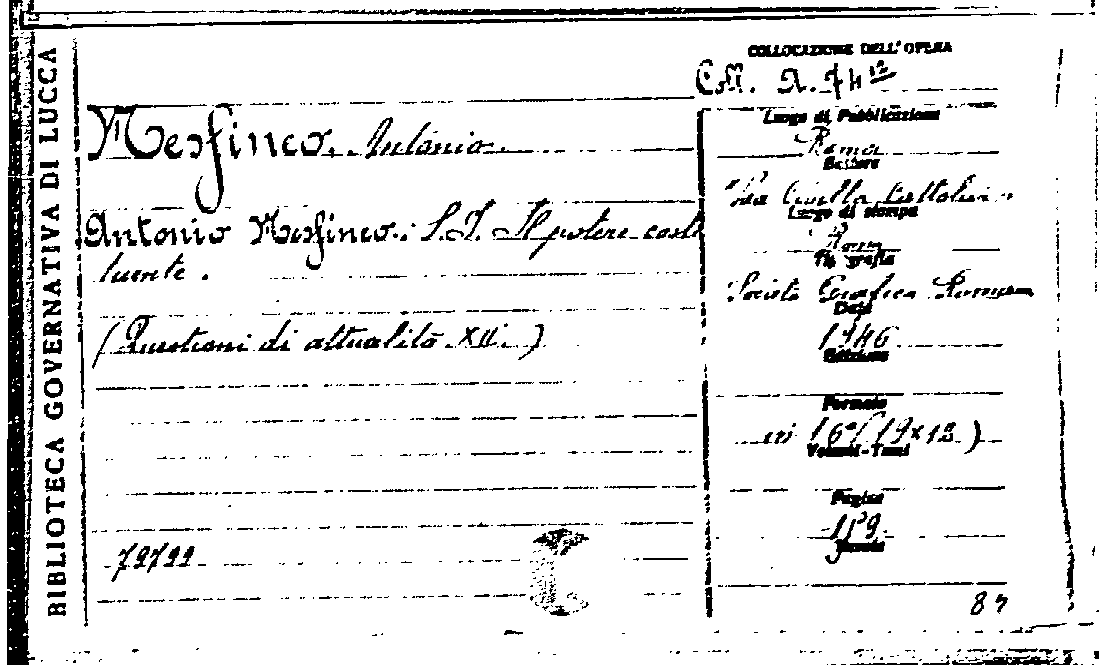 BIBLIOTECA GOVERNATIVA DI LUCCA
COLLOCAZIONE DELL'OPERA
Coll. A. 74 12
Messineo. Antonio.
Antonio Messineo: S.J. Il potere costi
tuente.
(Questioni di attualità XII.)
79799
Luogo di Pubblicazione
Roma
Editore
"La Civiltà Cattolica"
Luogo di stampa
Roma
Tipografia
Società Grafica Romana
Data
1946
Edizione
Formato
in 16°(19x12)
Volumi-Tomi
Pagine
119